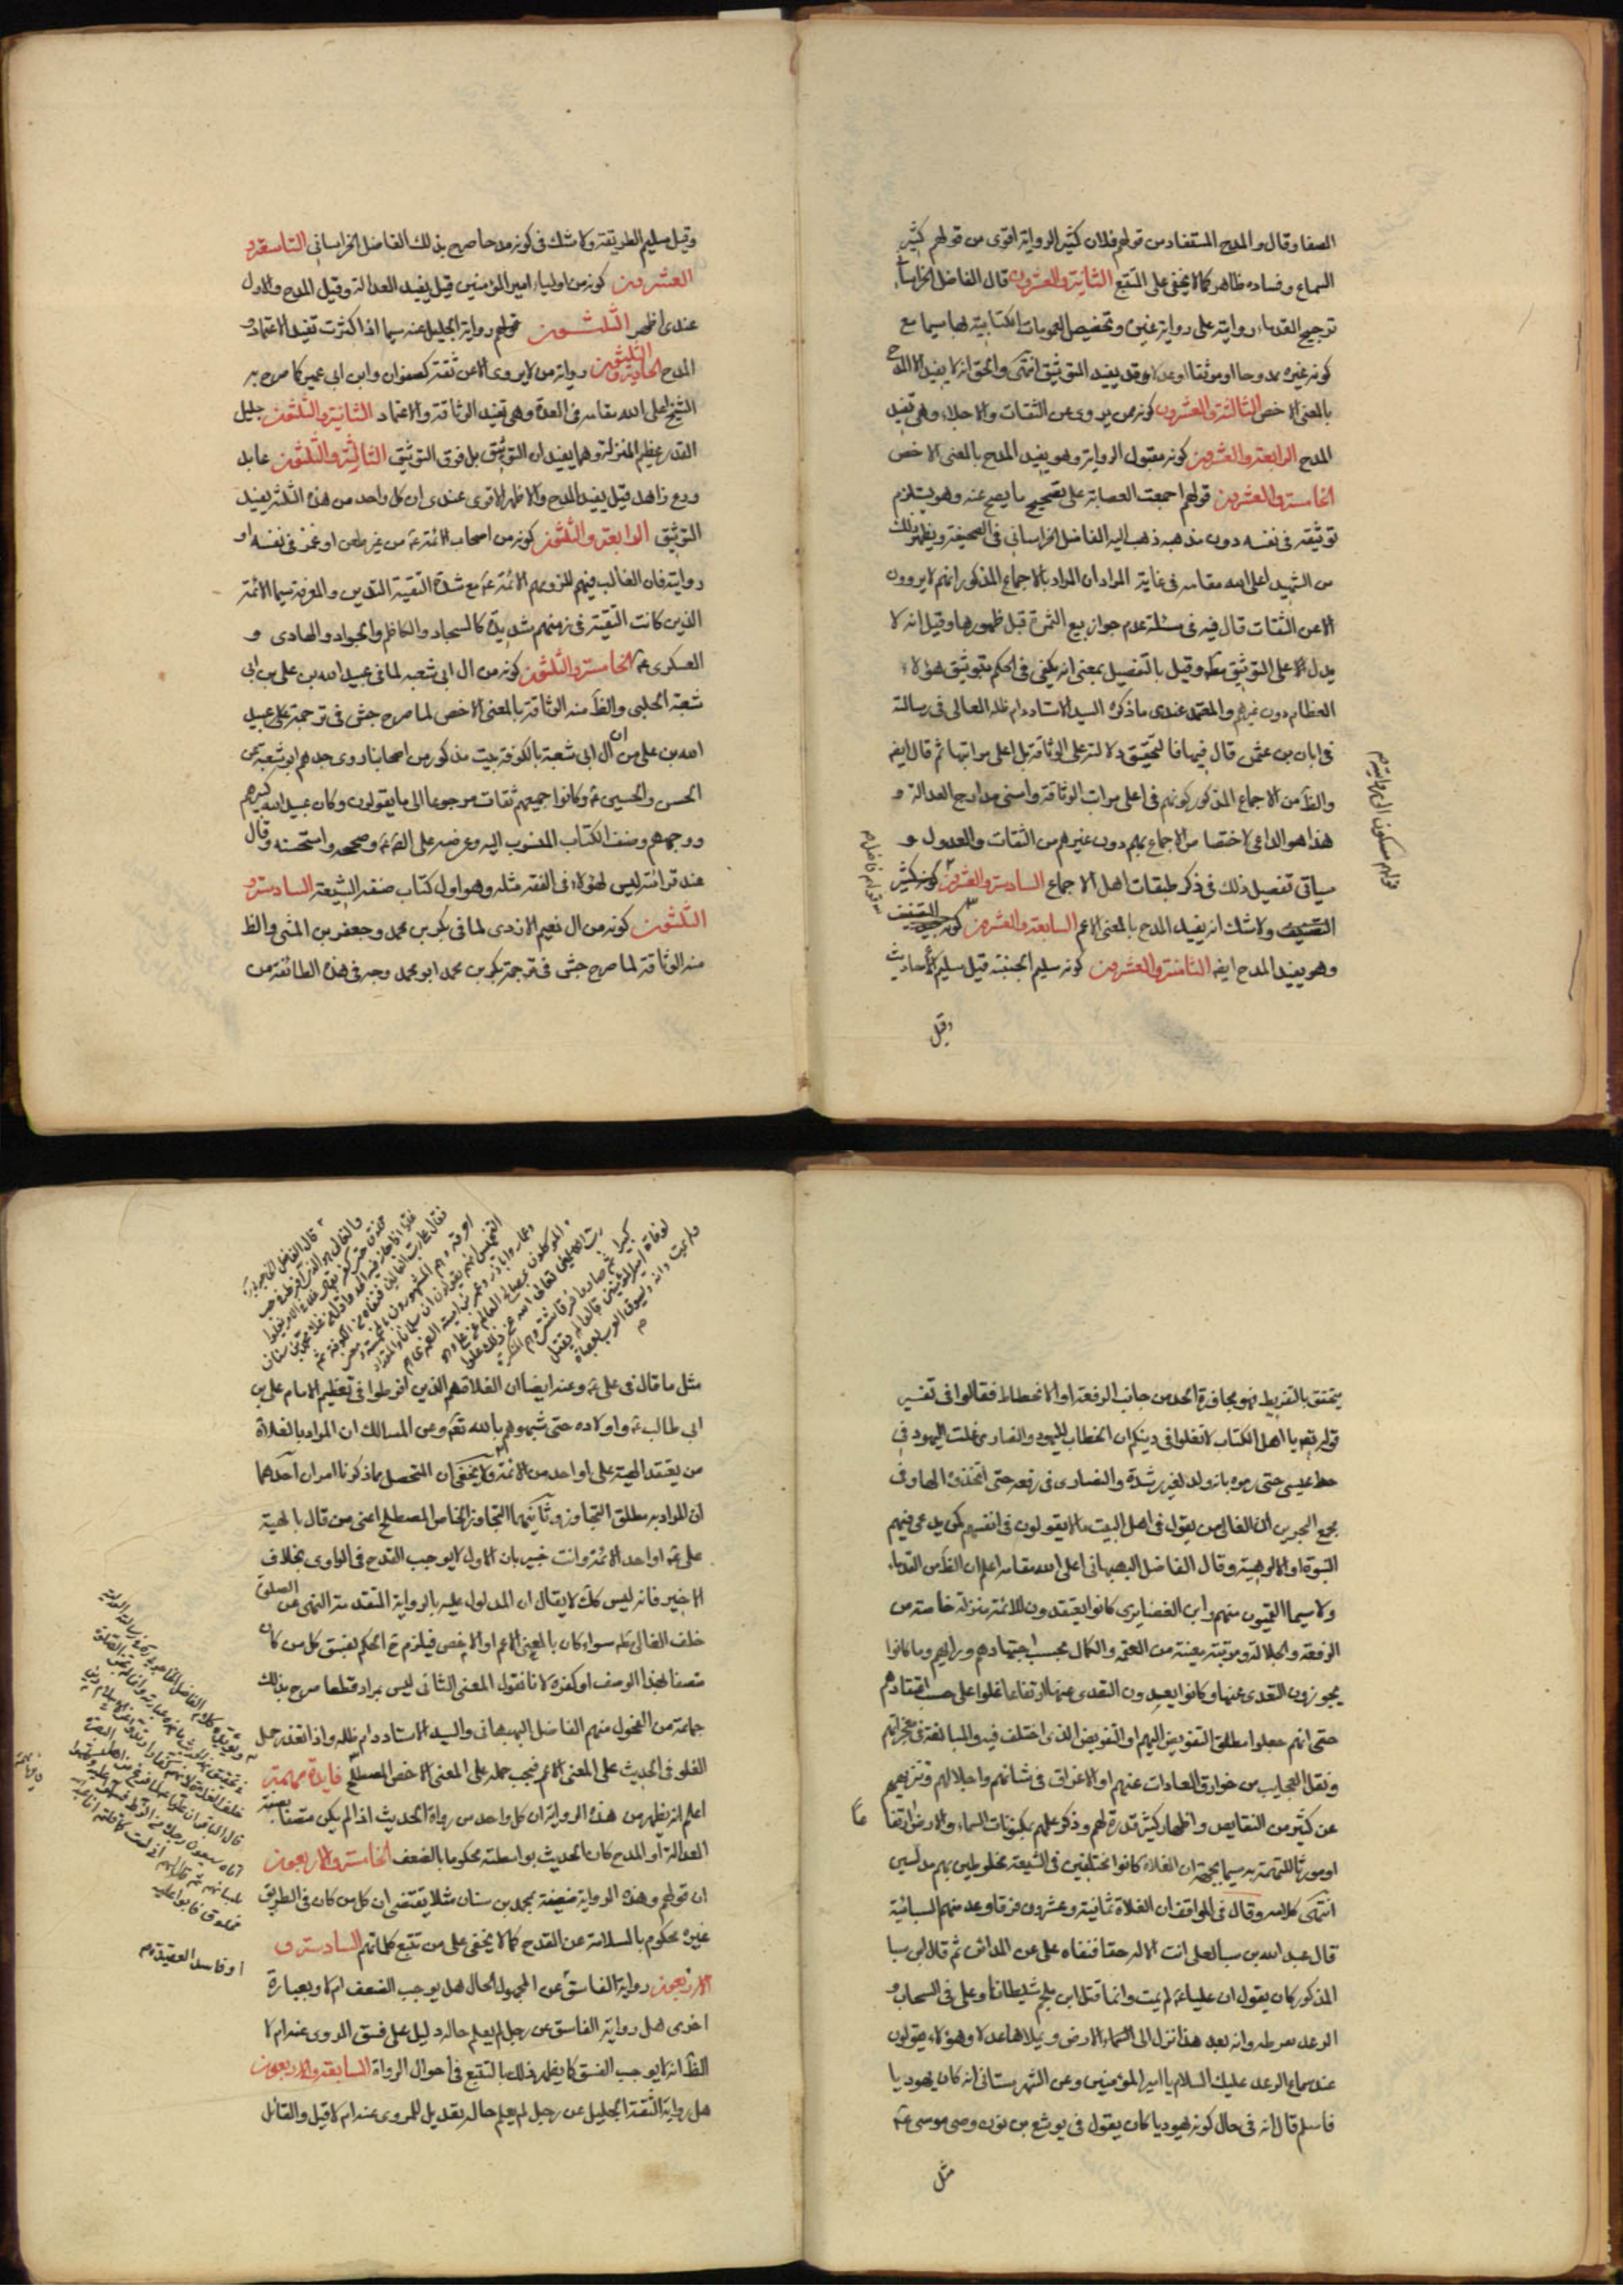 الصفا وقال والمدح المستفاد من قولهم فلان كثير الرواية اقوى من قولهم كثير
السماع وفساده ظاهر كما لا يخفى على المتتبع الثانية والعشرون قال الفاضل الخراساني
ترجيح القدماء روايته على رواية غيره وتخصيص العمومات الكتابية بها سيما مع
كونه غيره ممدوحا او موثقا او عدلا وقد يفيد التوثيق انتهى والحق انه لا يفيد الا المدح
بالمعنى الاخص الثالثة والعشرون كونه ممن يروى عن الثقات والاجلاء وهى تفيد
المدح الرابعة والعشرون كونه مقبول الرواية وهو يفيد المدح بالمعنى الاخص
الخامسة والعشرون قولهم اجمعت العصابة على تصحيح ما يصح عنه وهو يستلزم
توثيقه فى نفسه دون مذهبه ذهب اليه الفاضل الخراسانى فى الصحيفة ويظهر ذلك
من الشهيد اعلى الله مقامه فى غاية المراد ان المراد بالاجماع المذكور انهم لا يروون
الا عن الثقات قال فيه فى مسئلة عدم جواز بيع الثمرة قبل ظهورها وقيل انه لا
يدل الا على التوثيق مط وقيل بالتفصيل بمعنى انه يكفى فى الحكم بتوثيق هؤلاء
العظام دون غيرهم والمعتمد عندى ما ذكره السيد الاستاد دام ظله العالى فى رسالته
فى ابان بن عثمن قال فيها فالتحقيق دلالته على الوثاقة بل اعلى مراتبها ثم قال ايضه
والظ من الاجماع المذكور كونهم فى اعلى مراتب الوثاقة واسنى مدارج العدالة و
هذا هو الداعى لاختصاص الاجماع بهم دون غيرهم من الثقات والعدول و
سياتى تفصيل ذلك فى ذكر طبقات اهل الاجماع السادسة والعشرون كونه كثير
التصنيف ولا شك انه يفيد المدح بالمعنى الاعم السابعة والعشرون كونه جيد التصنيف
وهو يفيد المدح ايضه الثامنة والعشرون كونه سليم الجنبة قيل سليم الاحاديث
وقيل
وقيل سليم الطريقة ولا شك فى كونه مدحا صرح بذلك الفاضل الخراسانى التاسعة و
العشرون كونه من اولياء امير المؤمنين قيل يفيد العدالة وقيل المدح والاول
عندى اظهر الثلثون قولهم رواية الجليل عنه سيما اذا اكثرت تفيد الاعتماد و
المدح الحادية والثلثون رواية من لا يروى الا عن ثقة كصفوان وابن ابى عمير كما صرح به
الشيخ اعلى الله مقامه فى العدة وهى تفيد الوثاقة والاعتماد الثانية والثلثون جليل
القدر عظيم المنزلة وهما يفيدان التوثيق بل فوق التوثيق الثالثة والثلثون عابد
ورع زاهد قيل يفيد المدح والاظهر الاقوى عندى ان كل واحد من هذه الثلثة يفيد
التوثيق الرابعة والثلثون كونه من اصحاب الائمة ع من غير طعن او غمز فى نفسه او
روايته فان الغالب فيهم للزومهم الائمة ع مع شدة التقية التدين والمعرفة سيما الائمة
الذين كانت التقية فى زمنهم شديدة كالسجاد والكاظم والجواد والهادى و
العسكرى ع الخامسة والثلثون كونه من ال ابى شعبه لما فى عبيد الله بن على بن ابى
شعبة الحلبى والظ منه الوثاقة بالمعنى الاخص لما صرح جش فى ترجمة على عبيد
الله بن على من ان ال ابى شعبة بالكوفة بيت مذكور من اصحابنا روى جدهم ابو شعبة عن
الحسن والحسين ع وكانوا جميعهم ثقات مرجوعا الى ما يقولون وكان عبيد الله كبيرهم
ووجههم وصنف الكتاب المنسوب اليه وعرضه على الصه ع وصححه واستحسنه وقال
عند قرائته ليس لهؤلاء فى الفقه مثله وهو اول كتاب صنفه الشيعة السادسة و
الثلثون كونه من ال نعيم الازدى لما فى بكر بن محمد وجعفر بن المثنى والظ
منه الوثاقة لما صرح جش فى ترجمة بكر بن محمد ابو محمد وجه فى هذه الطائفة من
يتحقق بالتفريط فهو مجاوزة الحد من جانب الرفعة او الانحطاط فقالوا فى تفسير
قوله تعه يا اهل الكتاب لا تغلوا فى دينكم ان الخطاب لليهود والنصارى غلت اليهود فى
حط عيسى حتى رموه بانه ولد لغير رشدة والنصارى فى رفعه حتى اتخذوه الها وفى
مجمع البحرين ان الغالى من يقول فى اهل البيت ما لا يقولون فى انفسهم كمن يدعى فيهم
النبوة او الالوهية وقال الفاضل البهبهانى اعلى الله مقامه اعلم ان الظ من القدماء
ولا سيما القميون منهم وابن الغضايرى كانوا يعتقدون للائمة منزلة خاصة من
الرفعة والجلالة ومرتبة معينة من العصمة والكمال بحسب اجتهادهم ورايهم وما كانوا
يجوزون التعدى عنها وكانوا يعدون التعدى عنها ارتفاعا وغلوا على حسب اعتقادهم
حتى انهم جعلوا مطلق التفويض اليهم او التفويض الذى اختلف فيه والمبالغة فى معجزاتهم
ونقل العجايب من خوارق العادات عنهم او الاغراق فى شانهم واجلالهم وتنزيههم
عن كثير من النقايص واظهار كثير قدرة لهم وذكر علمهم بمكنونات السماء والارض ارتفا عا
او مورثا للتهمة به سيما بجهة ان الغلاة كانوا مختلفين فى الشيعة مخلوطين بهم مدلسين
انتهى كلامه وقال فى المواقف ان الغلاة ثمانية وعشرون فرقة وعد منهم السبائية
قال عبد الله بن سبا لعلى انت الاله حقا فنفاه على عن المدائن ثم قال ابن سبا
المذكور كان يقول ان عليا ع لم يمت وانما قتل ابن ملجم شيطانا وعلى فى السحاب و
الرعد صوته وانه بعد هذا نزل الى الارض ويملاها عدلا وهؤلاء يقولون
عند سماع الرعد عليك السلام يا امير المؤمنين وعن الشهرستانى انه كان يهوديا
فاسلم قال انه فى حال كونه يهوديا كان يقول فى يوشع بن نون وصى موسى ع
مثل
مثل ما قال فى على ع وعنه ايضا ان الغلاة هم الذين افرطوا فى تعظيم الامام على بن
ابى طالب ع واولاده حتى شبهوهم بالله تعه وعن المسالك ان المراد بالغلاة
من يعتقد الهية على او احد من الائمة ولا يخفى ان المتحصل مما ذكرنا امران احدهما
ان المراد به مطلق التجاوز وثانيهما التجاوز الخاص المصطلح اعنى من قال بالهية
على ع او احد الائمة وانت خبير بان الاول لا يوجب القدح فى الراوى بخلاف
الاخير فانه ليس كك لا يقال ان المدلول عليه بالرواية المتقدمة النهى عن الصلوة
خلف الغالى مط سواء كان بالمعنى الاعم او الاخص فيلزم ح الحكم بفسق كل من كان
متصفا بهذا الوصف او كفره لانا نقول المعنى الثانى ليس بمراد قطعا صرح بذلك
جماعة من الفحول منهم الفاضل البهبهانى والسيد الاستاد دام ظله واذا تعذر حمل
الغلو فى الحديث على المعنى الاعم فيجب حمله على المعنى الاخص المصطلح فايدة مهمة
اعلم انه يظهر من هذه الرواية ان كل واحد من رواة الحديث اذا لم يكن متصفا بصفة
العدالة او المدح كان الحديث بواسطته محكوما بالضعف الخامسة والاربعون
ان قولهم وهذه الرواية ضعيفة بمحمد بن سنان مثلا يقتضى ان كل من كان فى الطريق
غيره محكوم بالسلامة عن القدح كما لا يخفى على من تتبع كلماتهم السادسة و
الاربعون رواية الفاسق عن المجهول الحال هل يوجب الضعف ام لا وبعبارة
اخرى هل رواية الفاسق عن رجل لم يعلم حاله دليل على فسق المروى عنه ام لا
الظ انه لا يوجب الفسق كما يظهر ذلك بالتتبع فى احوال الرواة السابعة والاربعون
هل رواية الثقة الجليل عن رجل لم يعلم حاله تعديل للمروى عنه ام لا قيل والقائل
او فاسد العقيدة م